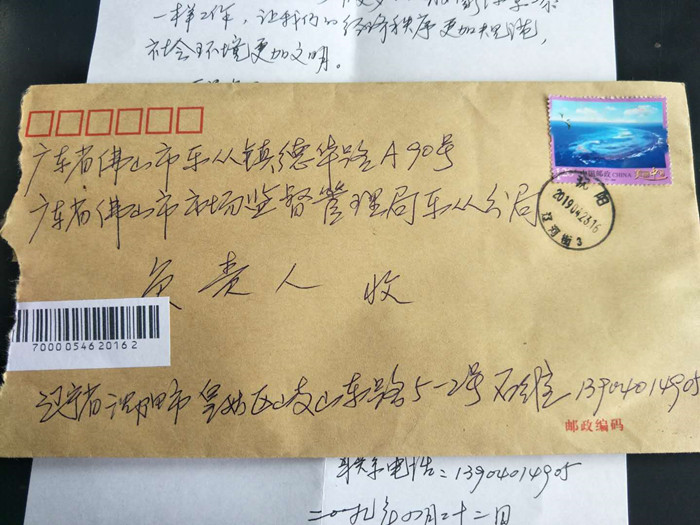 一样工作，让我们的经济秩序更加规范，
社会环境更加文明。
中国邮政 CHINA
沈阳
2019.04.23.16
广东省佛山市乐从镇德华路A90号
广东省佛山市市场监督管理局乐从分局
负责人 收
7000054620162
辽宁省沈阳市皇姑区岐山东路5-2号 13904014905
邮政编码
联系电话：13904014905
二〇一九年四月二十二日